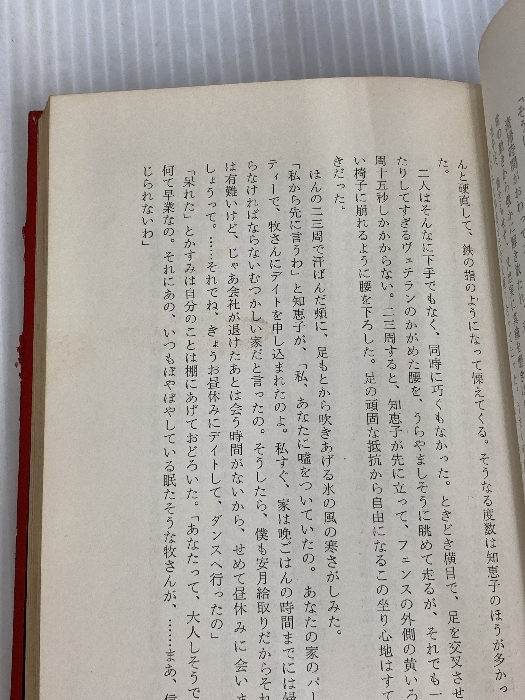 んと硬直して、鉄の指のようになって慄えてくる。そうなる度数は知恵子のほうが多かっ
た。
二人はそんなに下手でもなく、同時に巧くもなかった。ときどき横目で、足を交叉させ
たりしてすぎるヴェテランのかがめた腰を、うらやましそうに眺めて走るが、それでも
周十五秒しかかからない。二三周すると、知恵子が先に立って、フェンスの外側の黄いろ
い椅子に崩れるように腰を下ろした。足の頑固な抵抗から自由になるこの坐り心地はすて
きだった。
ほんの二三周で汗ばんだ頬に、足もとから吹きあげる氷の風の寒さがしみた。
「私から先に言うわ」と知恵子が、「私、あなたに嘘をついていたの。あなたの家のパー
ティーで、牧さんにデイトを申し込まれたのよ。私すぐ、家は晩ごはんの時間までには帰
らなければならないむつかしい家だと言ったの。そうしたら、僕も安月給取りだからそれ
は有難いけど、じゃあ会社が退けたあとは会う時間がないから、せめて昼休みに会いま
しょうって。……それでね、きょうお昼休みにデイトして、ダンスへ行ったの」
「呆れた」とかすみは自分のことは棚にあげておどろいた。「あなたって、大人しそうで
何て早業なの。それにあの、いつもぼやぼやしている眠たそうな牧さんが、……まあ、信
じられないわ」